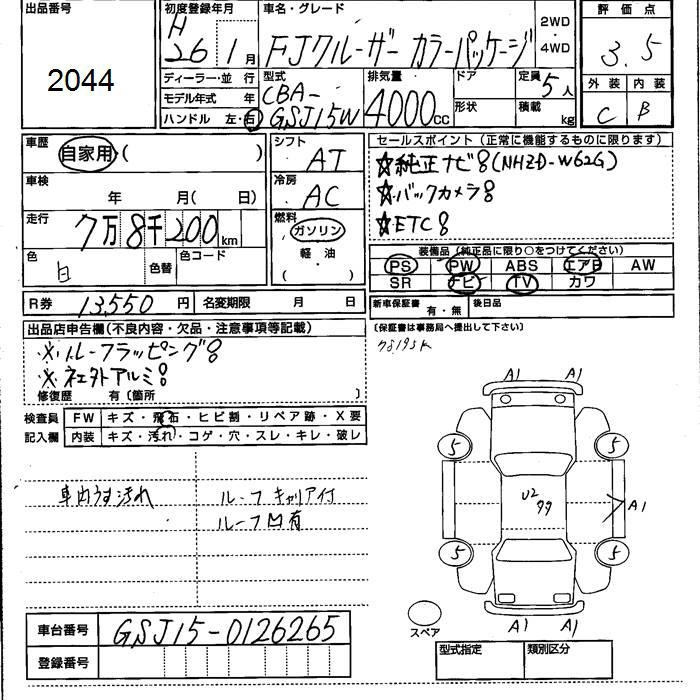 出品番号
2044
初度登録年月
H 26 1月
ディーラー・並行
モデル年式 年
ハンドル 左・右
車名・グレード
FJクルーザー カラーパッケージ
2WD
4WD
型式
CBA-
GSJ15W
排気量
4000cc
ドア
形状
定員
5人
積載
kg
評価点
3.5
外装 内装
C B
車歴
自家用・( )
車検
年 月( 日)
走行
7万8千200km
色
白
色替
色コード
シフト
AT
冷房
AC
燃料
ガソリン
・
軽・油
( )
R券 13,550 円
名変期限 月 日
セールスポイント(正常に機能するものに限ります)
☆純正ナビ(NHZD-W62G)
☆バックカメラ
☆ETC
装備品(純正品に限り○をつけてください)
PS PW ABS エアB AW
SR ナビ TV カワ
新車保証書 有・無
後日品
(保証書は事務局へ提出して下さい)
78195K
出品店申告欄(不良内容・欠品・注意事項等記載)
※ルーフラッピング
修復歴 有〔箇所 〕
検査員
記入欄
FW キズ・飛石・ヒビ割・リペア跡・X要
内装 キズ・汚れ・コゲ・穴・スレ・キレ・破レ
車内うす汚れ
ルーフキャリア付
ルーフ凹有
A1 A1
5 5
U2
A1
5 5
A1 A1
スペア
車台番号 GSJ15-0126265
登録番号
型式指定 類別区分